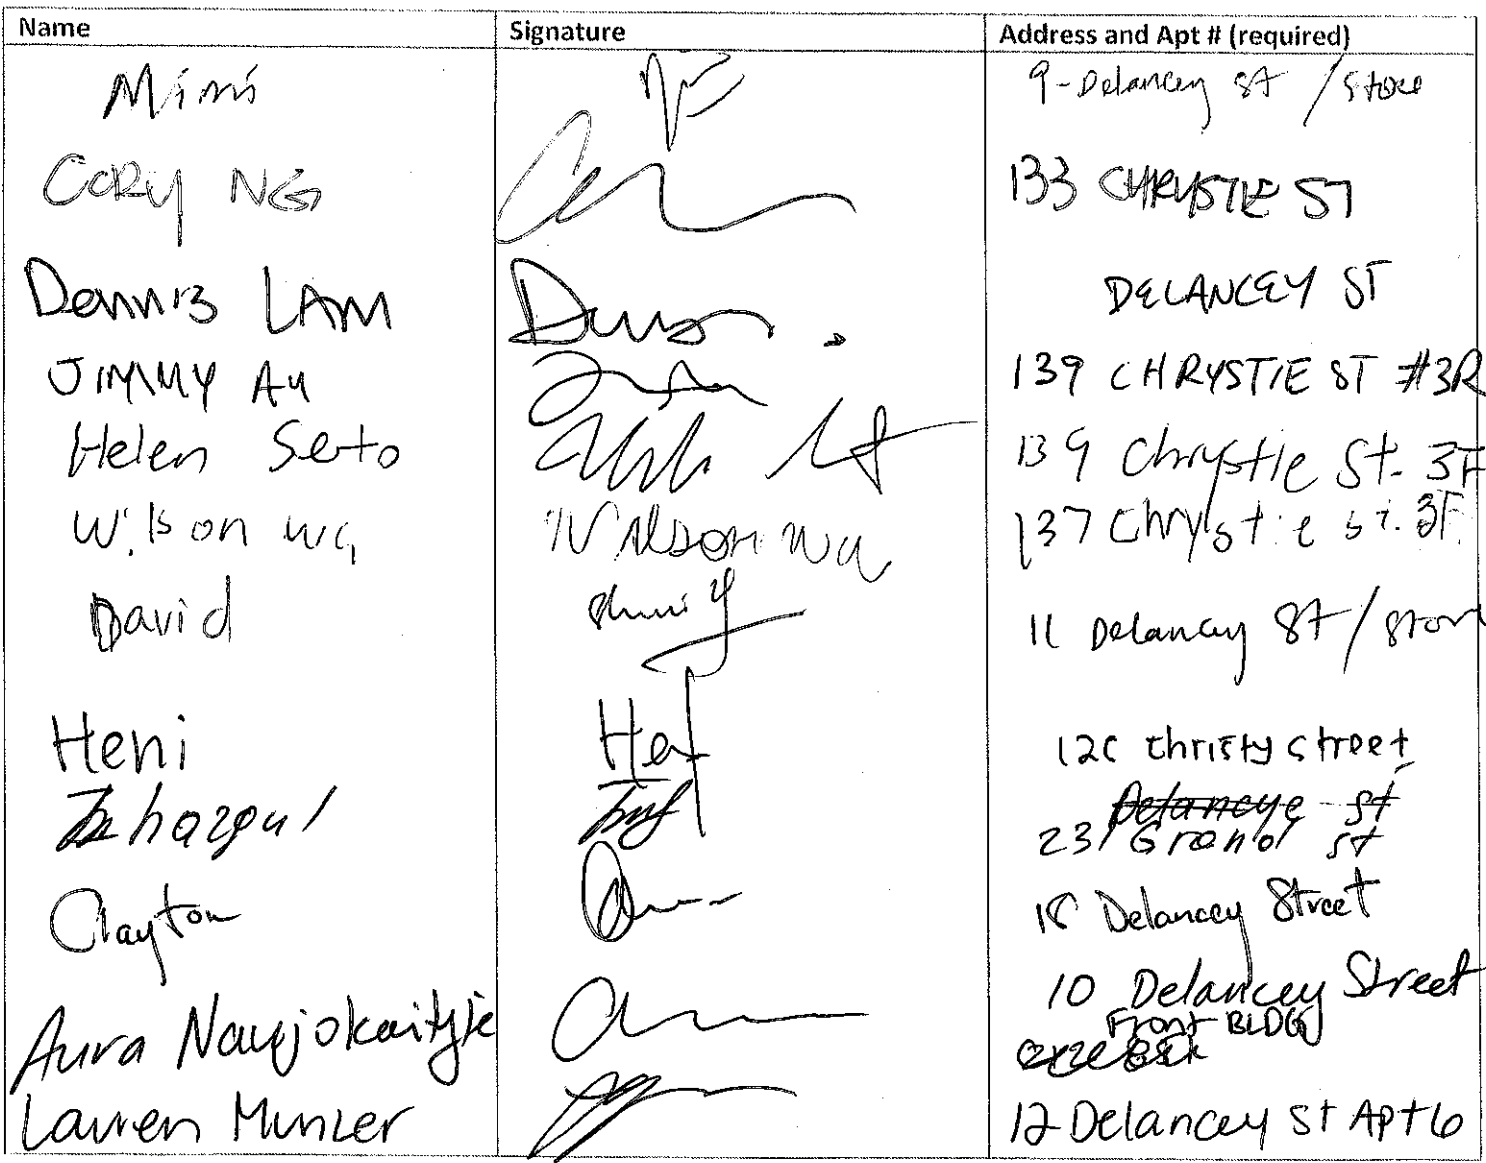 Name Signature Address and Apt # (required)
Mimi 9-Delancey St / Store
CORY NG 133 CHRYSTIE ST
Dennis LAM DELANCEY ST
JIMMY Au 139 CHRYSTIE ST #3R
Helen Seto 139 Chrystie St. 3F
Wilson Wu Wilson Wu 137 Chrystie st. 3F.
David 11 Delancey St / Store
Heni Hen Christy street
Delancye st
231 Grand st
Clayton Delancey Street
Aura Naujokaityte 10 Delancey Street
Front BLDG
Lauren Munzer 12 Delancey St Apt 6